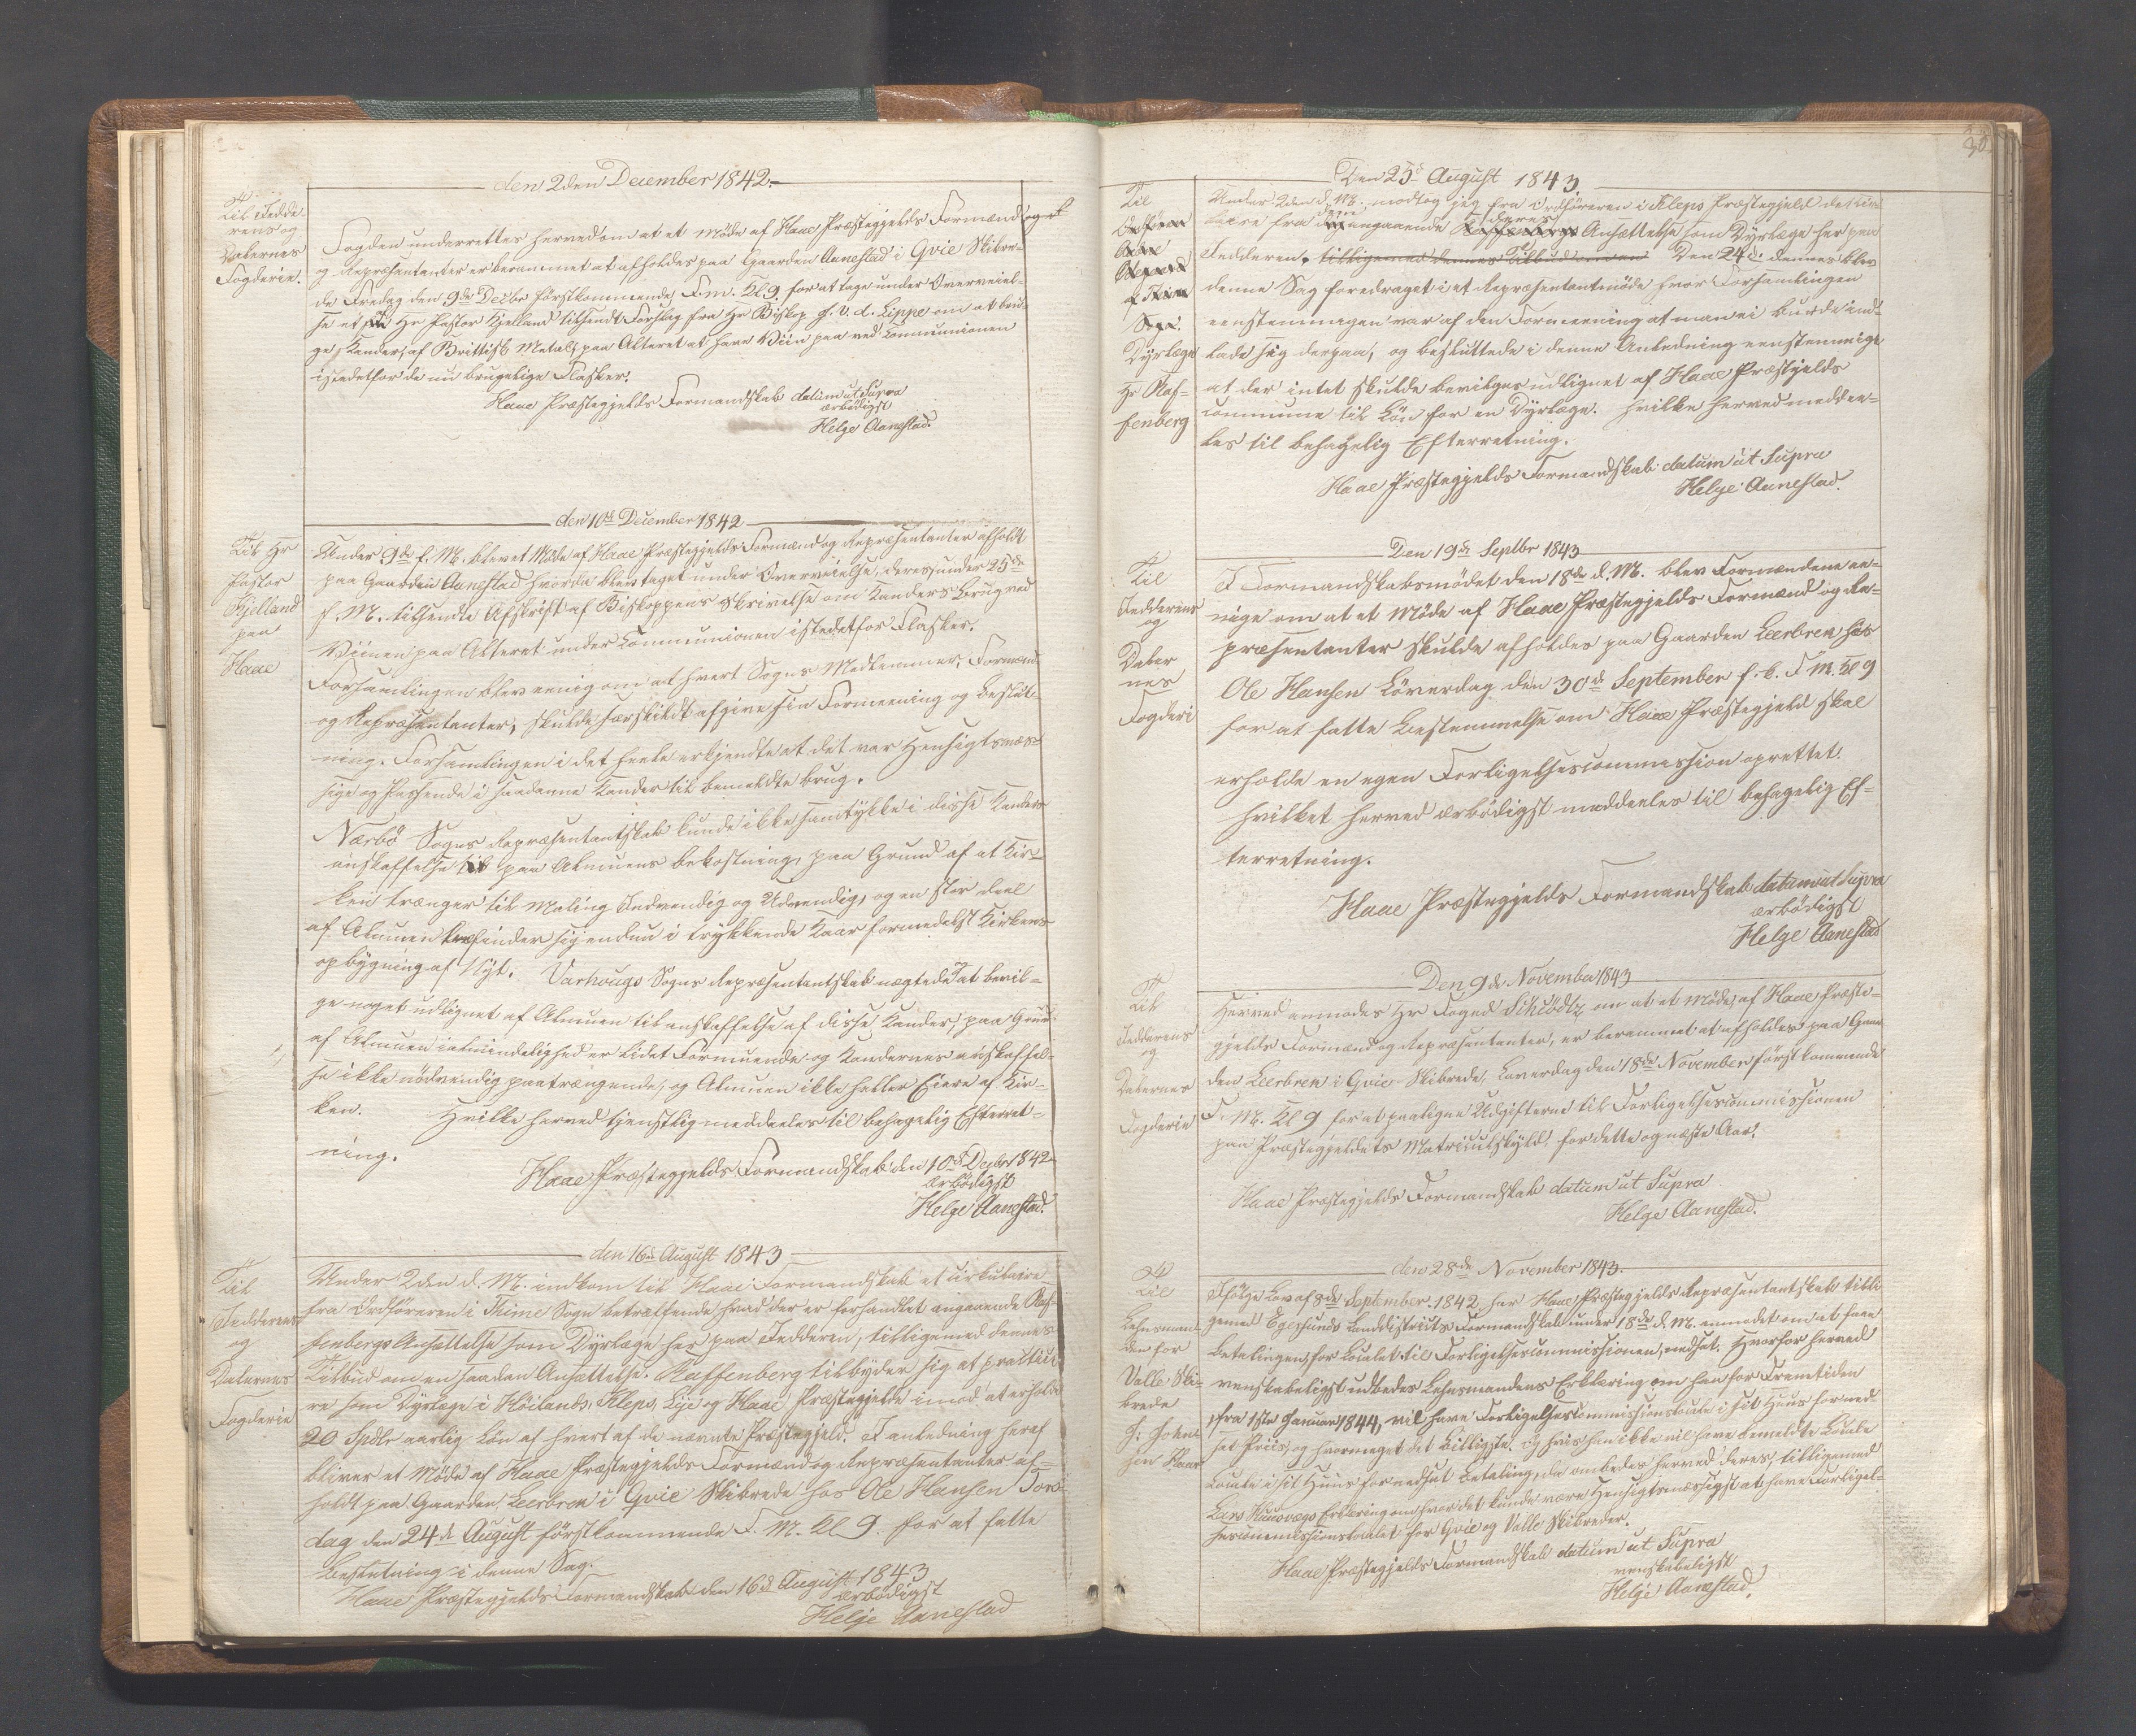 den 2den December 1842.
Til Jedde-
rens og
Dalernes
Fogderie.
Fogden underrettes herved om at et Møde af Haae Præstegjelds Formænd
og Repræsentanter er berammet at afholdes paa Gaarden Aanestad i Qvie Skibre-
de Fredag den 9de Decbr førstkommende F.m. Kl 9. for at tage under Overveiel-
se et Hr Pastor Kjelland tilsendt Forslag fra Hr Biskop J. v. d. Lippe om at bru-
ge, Kander, af Brittisk Metal, paa Alteret at have Viin paa ved Communionen
istedetfor de nu brugelige Flasker.
Haae Præstegjelds Formandskab datum ut Supra
ærbødigst
Helge Aanestad.
den 10de December 1842
Til Hr
Pastor
Kjelland
paa
Haae
Under 9de d. M. blev et Møde af Haae Præstegjelds Formænd og Repræsentanter afholdt
paa Gaarden Aanestad hvorda blev taget under Overveielse, deres, under 25de
f. M. tilsendte Afskrift af Biskoppens Skrivelse om Kanders Brug ved
Viinen paa Alteret under Communionen istedetfor Flasker.
Forsamlingen blev eenig om at hvert Sogns Medlemmer, Formænd
og Repræsentanter, skulde særskildt afgive sin Formeening og Beslut-
ning. Forsamlingen i det heele erkjendte at det var Hensigtsmæs-
sige og Passende i saadanne Kander til bemeldte brug.
Nærbø Sogns Repræsentantskab kunde ikke samtykke i disse Kanders
anskaffelse paa Almuens bekostning, paa Grund af at Kir-
ken trænger til Maling Indvendig og Udvendig, og en stor deel
af Almuen befinder sig endnu i trykkende Kaar formedelst Kirkens
opbygning af Nyt. Varhougs Sogns Repræsentantskab nægtede at bevil-
ge noget udlignet af Almuen til anskaffelse af disse Kander, paa Grund
af Almuen i almindelighed er lidet Formuende og Kandernes anskaffel-
se ikke nødvendig paatrængende, og Almuen ikke heller Eiere af Kir-
ken. Hvilke herved tjenstlig meddeeles til behagelig Efterret-
ning.
Haae Præstegjelds Formandskab den 10de Decbr 1842
ærbødigst
Helge Aanestad.
den 16de August 1843
Til
Jedderens
og
Dalernes
Fogderie
Under 2den d. M. indkom til Haae Formandskab et cirkulaire
fra Ordføreren i Thime Sogn betræffende hvad der er forhandlet angaaende Raf-
fenbergs Ansættelse som Dyrlæge her paa Jedderen, tilligemed dennes
Tilbud om en saadan Ansættelse. Raffenberg tilbyder sig at practice-
re som Dyrlæge i Höilands, Kleps, Lye og Haae Præstegjelde imod at erholde
20 Spdlr aarlig Løn af hvert af de nævnte Præstegjeld. I anledning heraf
bliver et Møde af Haae Præstegjelds Formænd og Repræsentanter af-
holdt paa Gaarden Leerbrek i Qvie Skibrede hos Ole Hansen Tors-
dag den 24de August førstkommende F. M. Kl 9. for at fatte
Beslutning i denne Sag.
Haae Præstegjelds Formandskab den 16de August 1843
ærbødigst
Helge Aanestad
30
Den 25de August 1843.
Til
Dyrlæge
Hr Raf-
fenberg
Under 2den d. M. modtog jeg fra Ordføreren i Kleps Præstegjeld
fra dem angaaende deres Ansættelse som Dyrlæge her paa
Jedderen. tilligemed dennes Tilbud Den 24d. dennes blev
denne Sag foredraget i et Repræsentantmøde hvor Forsamlingen
eenstemmigen var af den Formeening at man ei burde ind-
lade sig derpaa, og besluttede i denne Anledning eenstemmige
at der intet skulde bevilges udlignet af Haae Præstgjelds
Commune til Løn for en Dyrlæge. Hvilke herved meddee-
les til behagelig Efterretning.
Haae Præstegjelds Formandskab datum ut Supra
Helge Aanestad.
Den 19de Septbr 1843
Til
Jedderens
og
Daler
nes
Fogderi
I Formandskabsmødet den 18de d. M. blev Formændene ee-
nige om at et Møde af Haae Præstegjelds Formænd og Re-
præsentanter skulde afholdes paa Gaarden Leerbrek hos
Ole Hansen Löverdag den 30de September f. k. F M. Kl 9
for at fatte Bestemmelse om Haae Præstegjeld skal
erholde en egen Forligelsescommission oprettet.
hvilket herved ærbødigst meddeeles til behagelig Ef-
terretning.
Haae Præstegjelds Formandskab datum ut Supra
ærbødigst
Helge Aanestad
Den 9de November 1843
Til
Jedderens
og
Dalernes
Fogderie
Herved anmodes Hr Foged Schiødtz om at et Møde, af Haae Præste-
gjelds Formænd og Repræsentanter, er berammet at afholdes paa Gaar
den Leerbrek i Qvie Skibrede, Løverdag den 18de November først kommende
F. M. Kl 9 for at paaligne Udgifterne til Forligelsescommissionen
paa Præstegjeldets Matriculskyld for dette og næste Aar.
Haae Præstegjelds Formandskab datum ut Supra
Helge Aanestad.
den 28de November 1843.
Til
Lehnsmand
den for
Valle Ski-
brede
Ifølge Lov af 8de September 1842 har Haae Præstegjelds Repræsentantskab tilli
gemed Egersunds Landdistricts Formandskab under 18de d. M. anmodet om at faae
betalingen for Localet til Forligelsescommissionen, nedsat. Hvorfor herved
venskabeligst udbedes Lehnsmandens Erklæring om han for Fremtiden
fra 1ste Januar 1844, vil have Forligelsescommissionslocale i sit Huus for ned-
sat Priis, og hvormeget det billigste, og hvis han ikke vil have bemeldte Locale
Locale i sit Huus for nedsat Betaling, da ombedes herved deres, tilligemed
Lars Erklæring om hvor det kunde være Hensigtsmæssigst at have Forligel-
sescommissionslocalet for Qvie og Valle Skibreder.
Haae Præstegjelds Formandskab datum ut Supra
venskabeligst
Helge Aanestad.